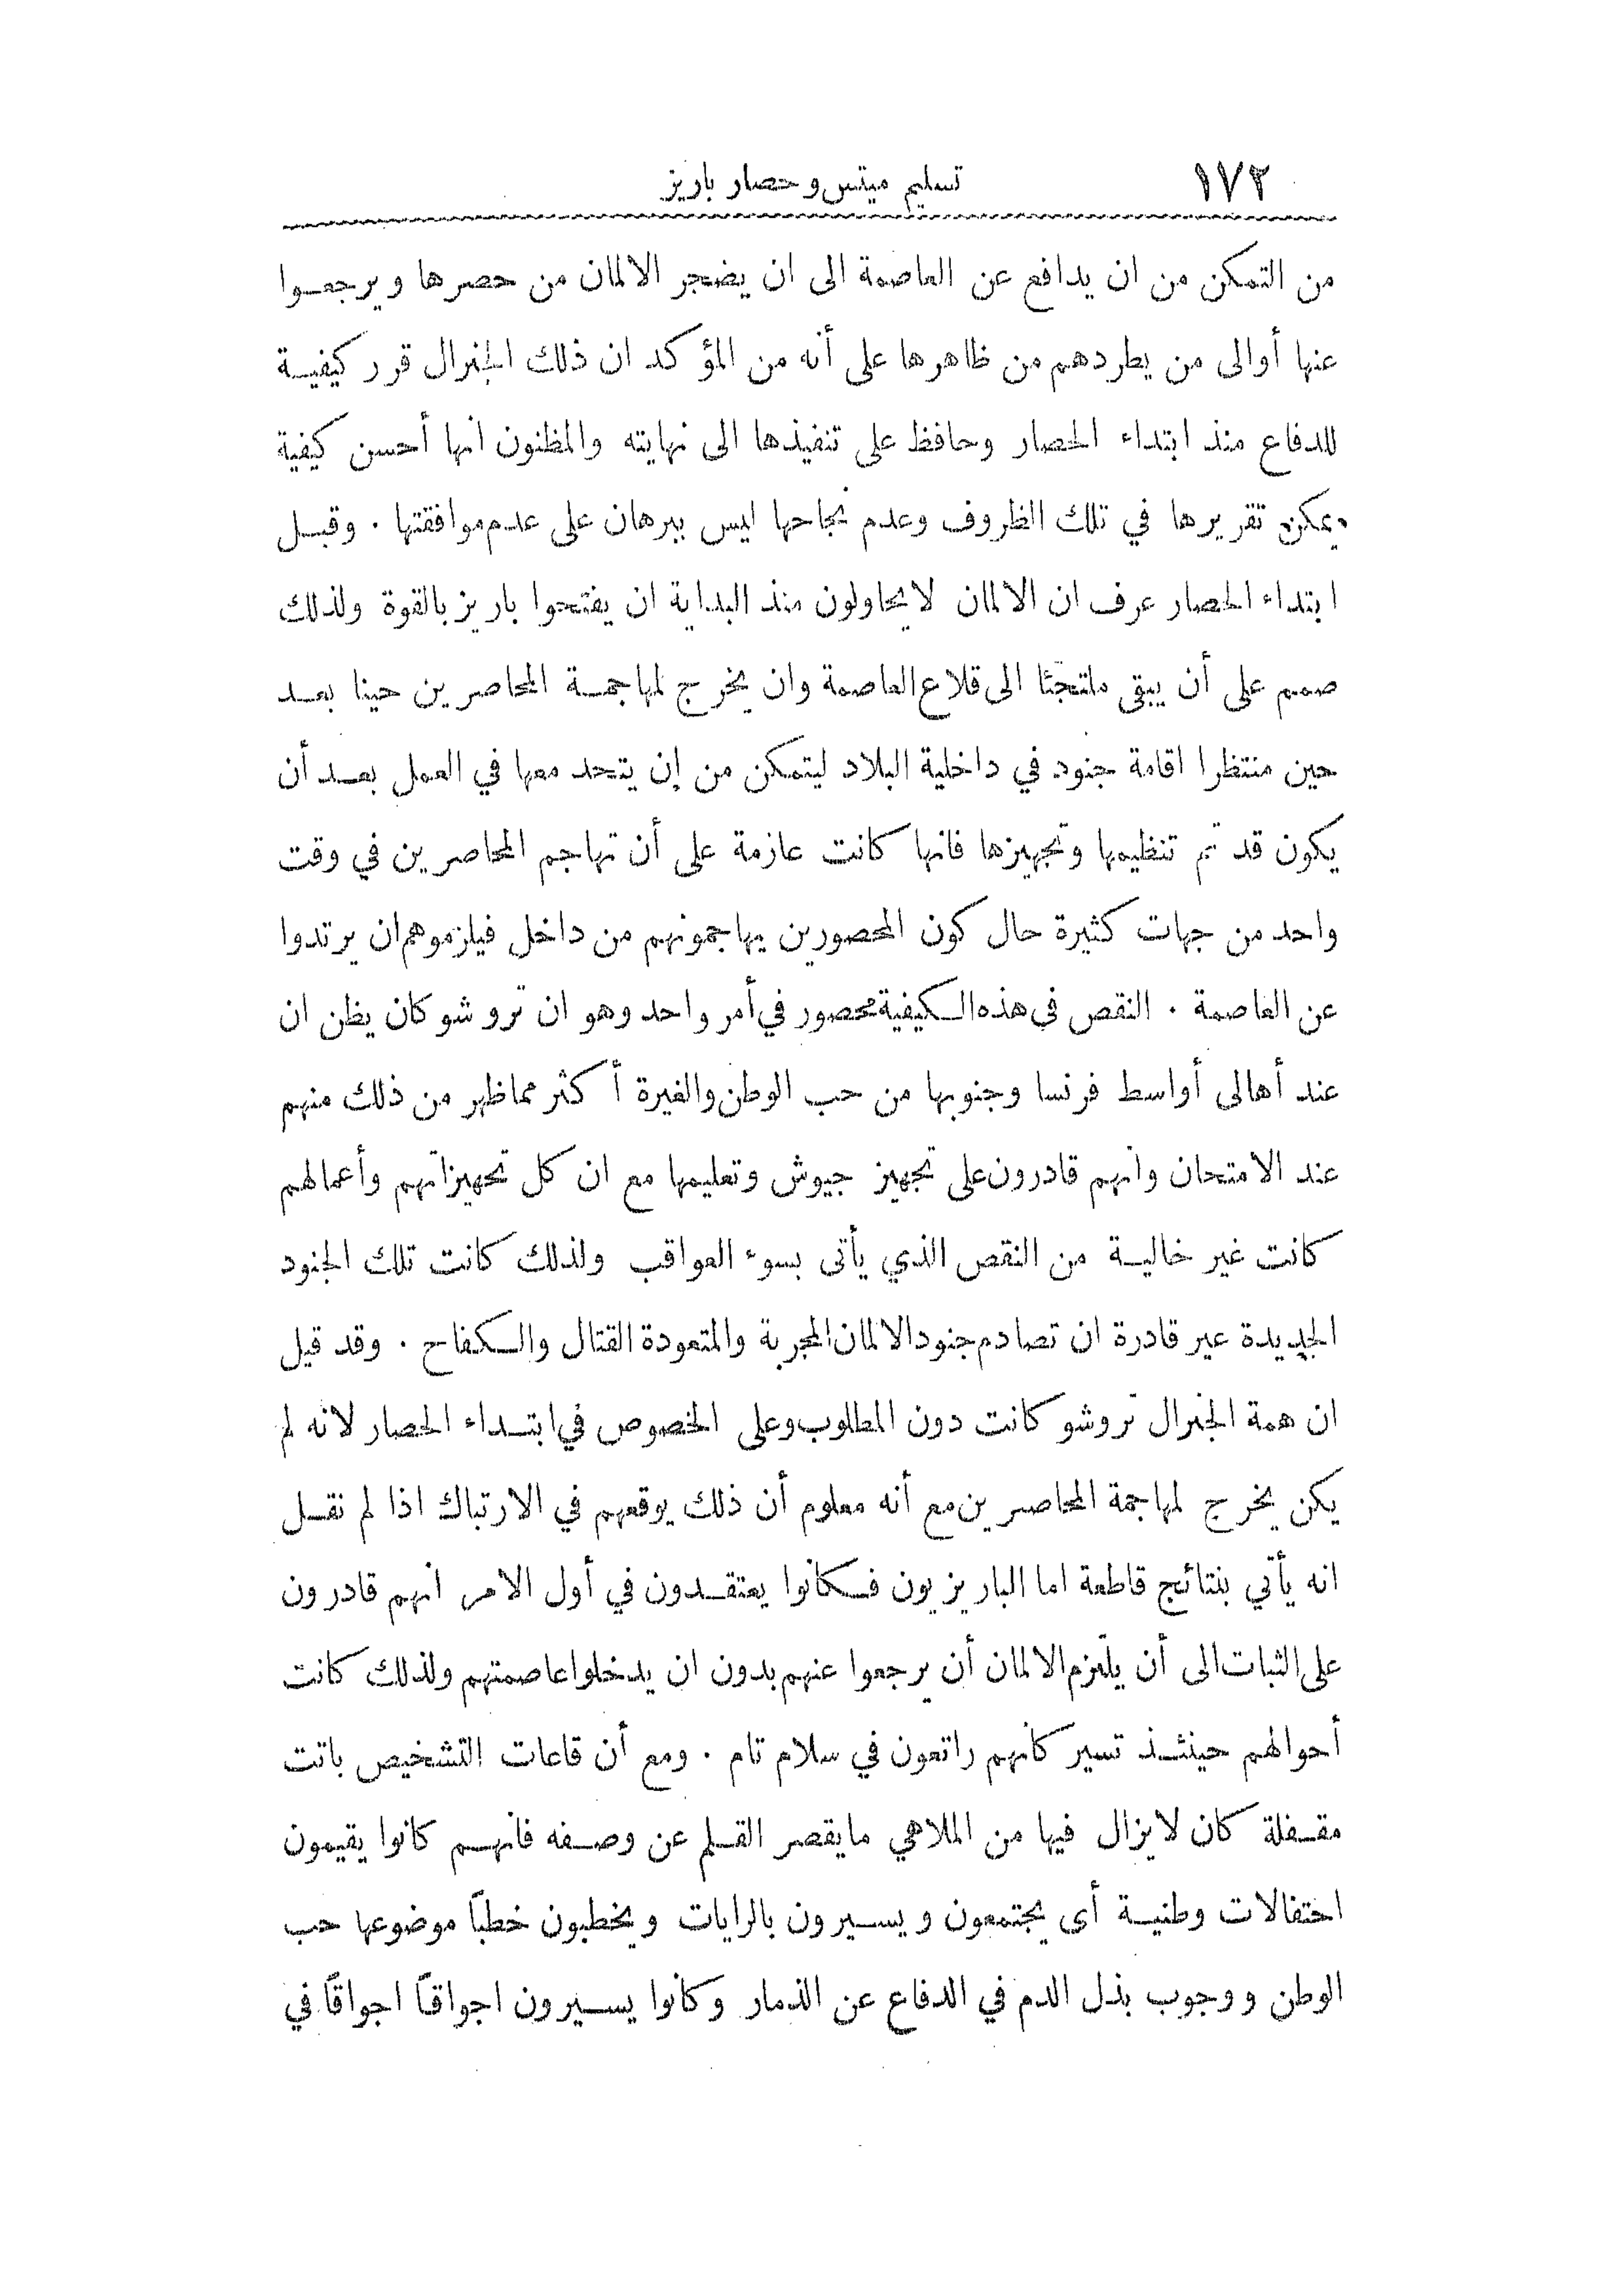 ١٧٢ تسليم ميتس وحصار باريز
من التمكن من ان يدافع عن العاصمة الى ان يضجر الالمان من حصرها ويرجعوا
عنها أوالى من يطردهم من ظاهرها على أنه من المؤكد ان ذلك الجنرال قرر كيفية
للدفاع منذ ابتداء الحصار وحافظ على تنفيذها الى نهايته والمظنون انها أحسن كيفية
يمكن تقريرها في تلك الظروف وعدم نجاحها ليس ببرهان على عدم موافقتها . وقبل
ابتداء الحصار عرف ان الالمان لايحاولون منذ البداية ان يفتتحوا باريز بالقوة ولذلك
صمم على أن يبقى ملتجئا الى قلاع العاصمة وان يخرج لمهاجمة المحاصرين حينا بعد
حين منتظرا اقامة جنود في داخلية البلاد ليتمكن من إن يتحد معها في العمل بعد أن
يكون قد تم تنظيمها وتجهيزها فانها كانت عازمة على أن تهاجم المحاصرين في وقت
واحد من جهات كثيرة حال كون المحصورين يهاجمونهم من داخل فيلزموهم ان يرتدوا
عن العاصمة . النقص فى هذه الكيفية محصور في أمر واحد وهو ان تروشو كان يظن ان
عند أهالى أواسط فرنسا وجنوبها من حب الوطن والغيرة أكثر مماظهر من ذلك منهم
عند الامتحان وانهم قادرون على تجهيز جيوش وتعليمها مع ان كل تجهيزاتهم وأعمالهم
كانت غير خالية من النقص الذي يأتى بسوء العواقب ولذلك كانت تلك الجنود
الجديدة عير قادرة ان تصادم جنود الالمان المجربة والمتعودة القتال والكفاح . وقد قيل
ان همة الجنرال تروشو كانت دون المطلوب وعلى الخصوص في ابتداء الحصار لانه لم
يكن يخرج لمهاجمة المحاصرين مع أنه معلوم أن ذلك يوقعهم في الارتباك اذا لم نقل
انه يأتي بنتائج قاطعة اما الباريزيون فكانوا يعتقدون في أول الامر انهم قادرون
على الثبات الى أن يلتزم الالمان أن يرجعوا عنهم بدون ان يدخلوا عاصمتهم ولذلك كانت
أحوالهم حينئذ تسير كانهم راتعون في سلام تام . ومع أن قاعات التشخيص باتت
مقفلة كان لايزال فيها من الملاهي مايقصر القلم عن وصفه فانهم كانوا يقيمون
احتفالات وطنية أى يجتمعون ويسيرون بالرايات ويخطبون خطباً موضوعها حب
الوطن ووجوب بذل الدم في الدفاع عن الذمار وكانوا يسيرون اجواقاً اجواقاً في